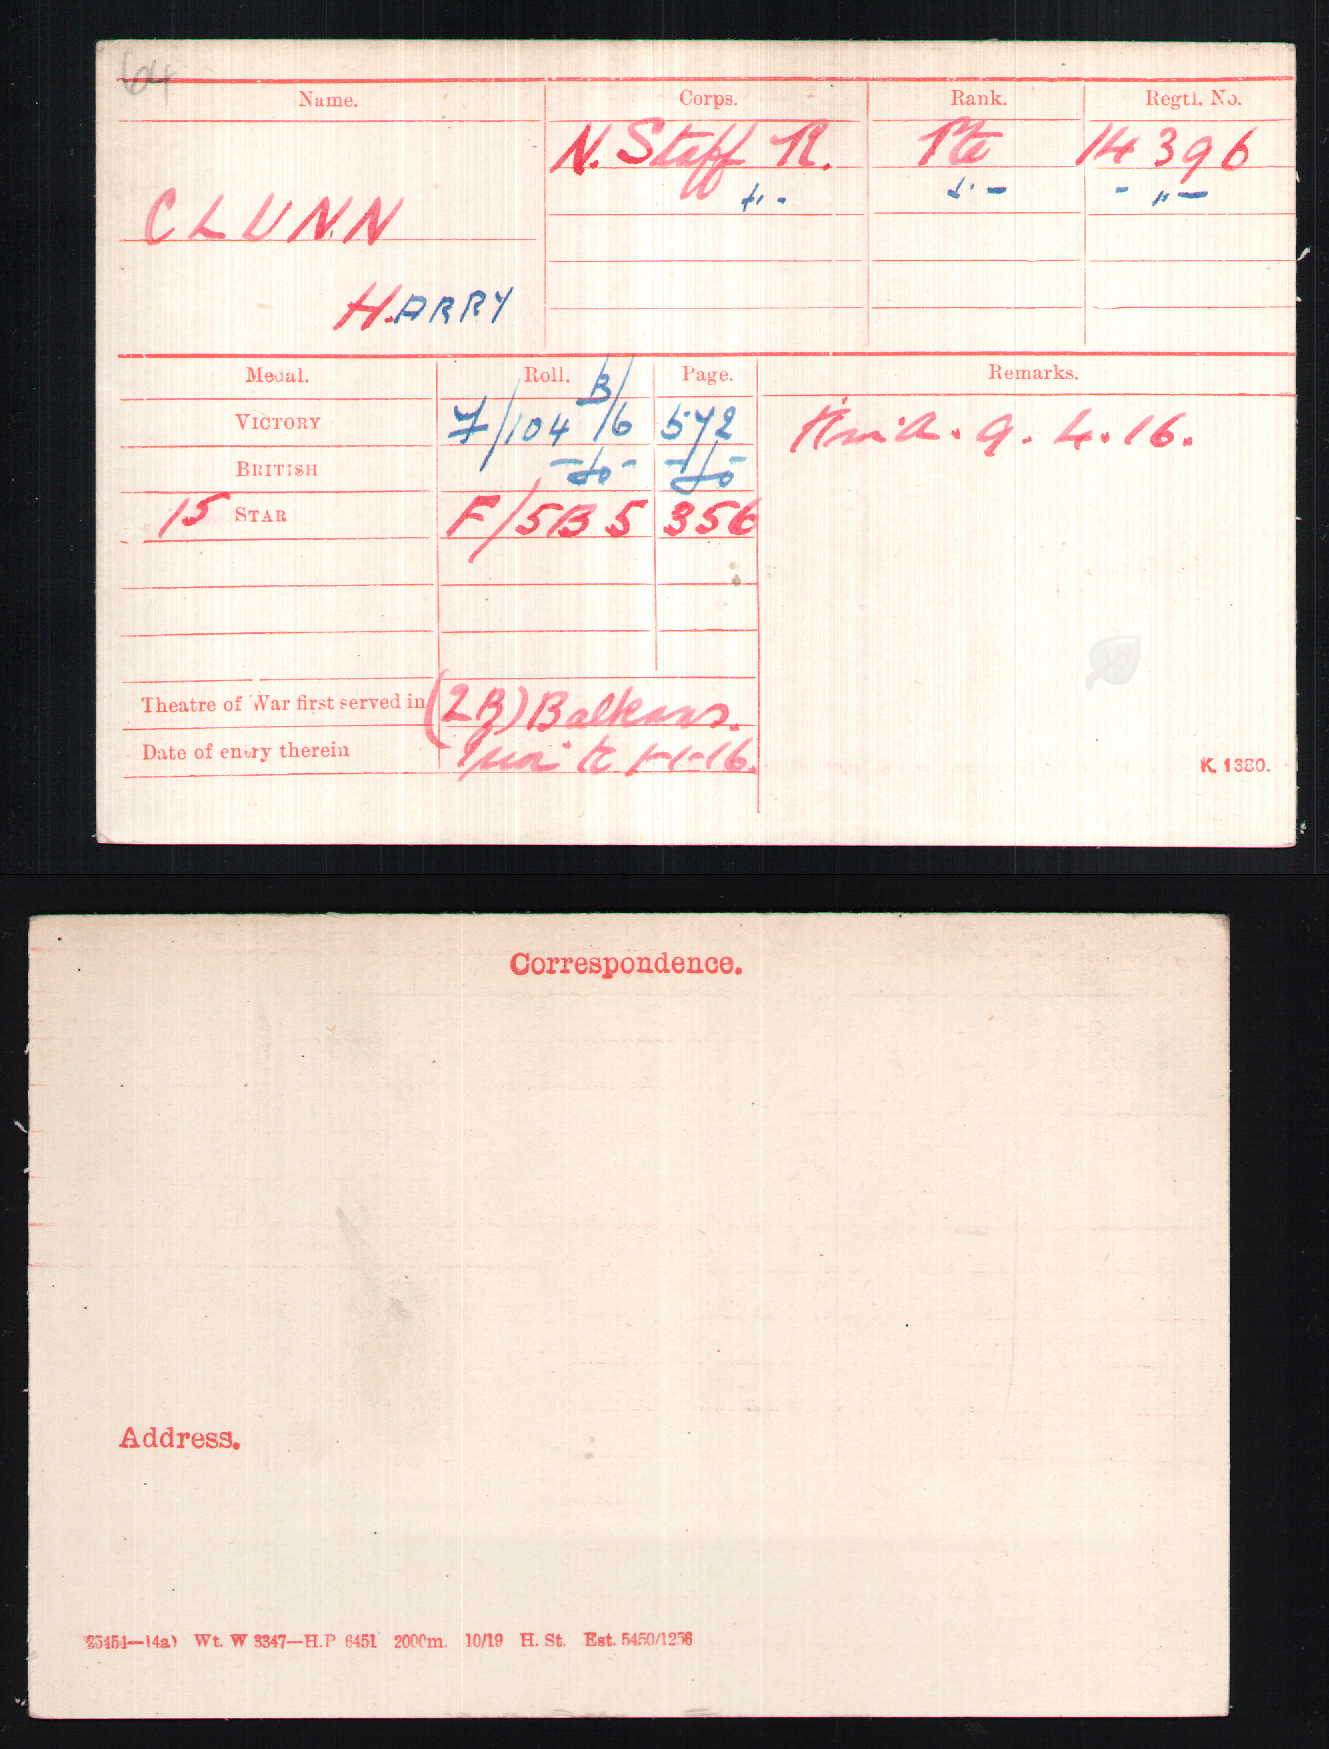 64
Name. Corps. Rank. Regtl. No.
N. Staff R. Pte 14396
-"- -"- -"-
CLUNN
HARRY
Medal. Roll. Page. Remarks.
VICTORY F/104 B/6 572 K in A. 9.4.16.
BRITISH -do- -do-
15 STAR F/5B5 356
Theatre of War first served in (2B) Balkans.
Date of entry therein prior to 1-1-16.
K. 1380.
Correspondence.
Address.
25454—14a) Wt. W 3347—H.P 6451 2000m. 10/19 H. St. Est. 5450/1256